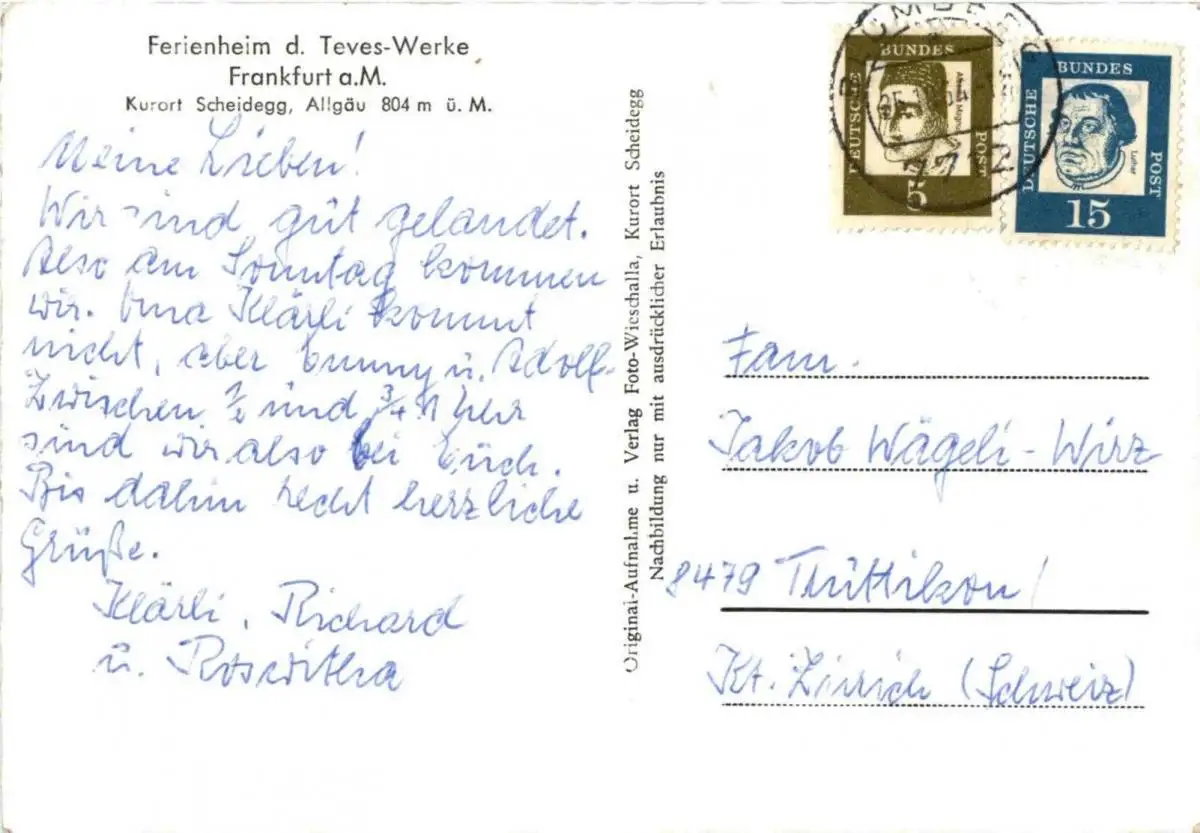 Ferienheim d. Teves-Werke
Frankfurt a.M.
Kurort Scheidegg, Allgäu 804 m ü. M.
Meine Lieben!
Wir sind gut gelandet.
Also am Sonntag kommen
wir. Oma Klärli kommt
nicht, aber Emmy u. Adolf.
Zwischen ½ und ¾ 11 Uhr
sind wir also bei Euch.
Bis dahin recht herzliche
Grüße.
Klärli, Richard
u. Roswitha
Original-Aufnahme u. Verlag Foto-Wieschalla, Kurort Scheidegg
Nachbildung nur mit ausdrücklicher Erlaubnis
DEUTSCHE BUNDES POST
5
7712
DEUTSCHE BUNDES POST
Luther
15
Fam.
Jakob Wägeli-Wirz
8479 Trüttikon/
Kt. Zürich (Schweiz)